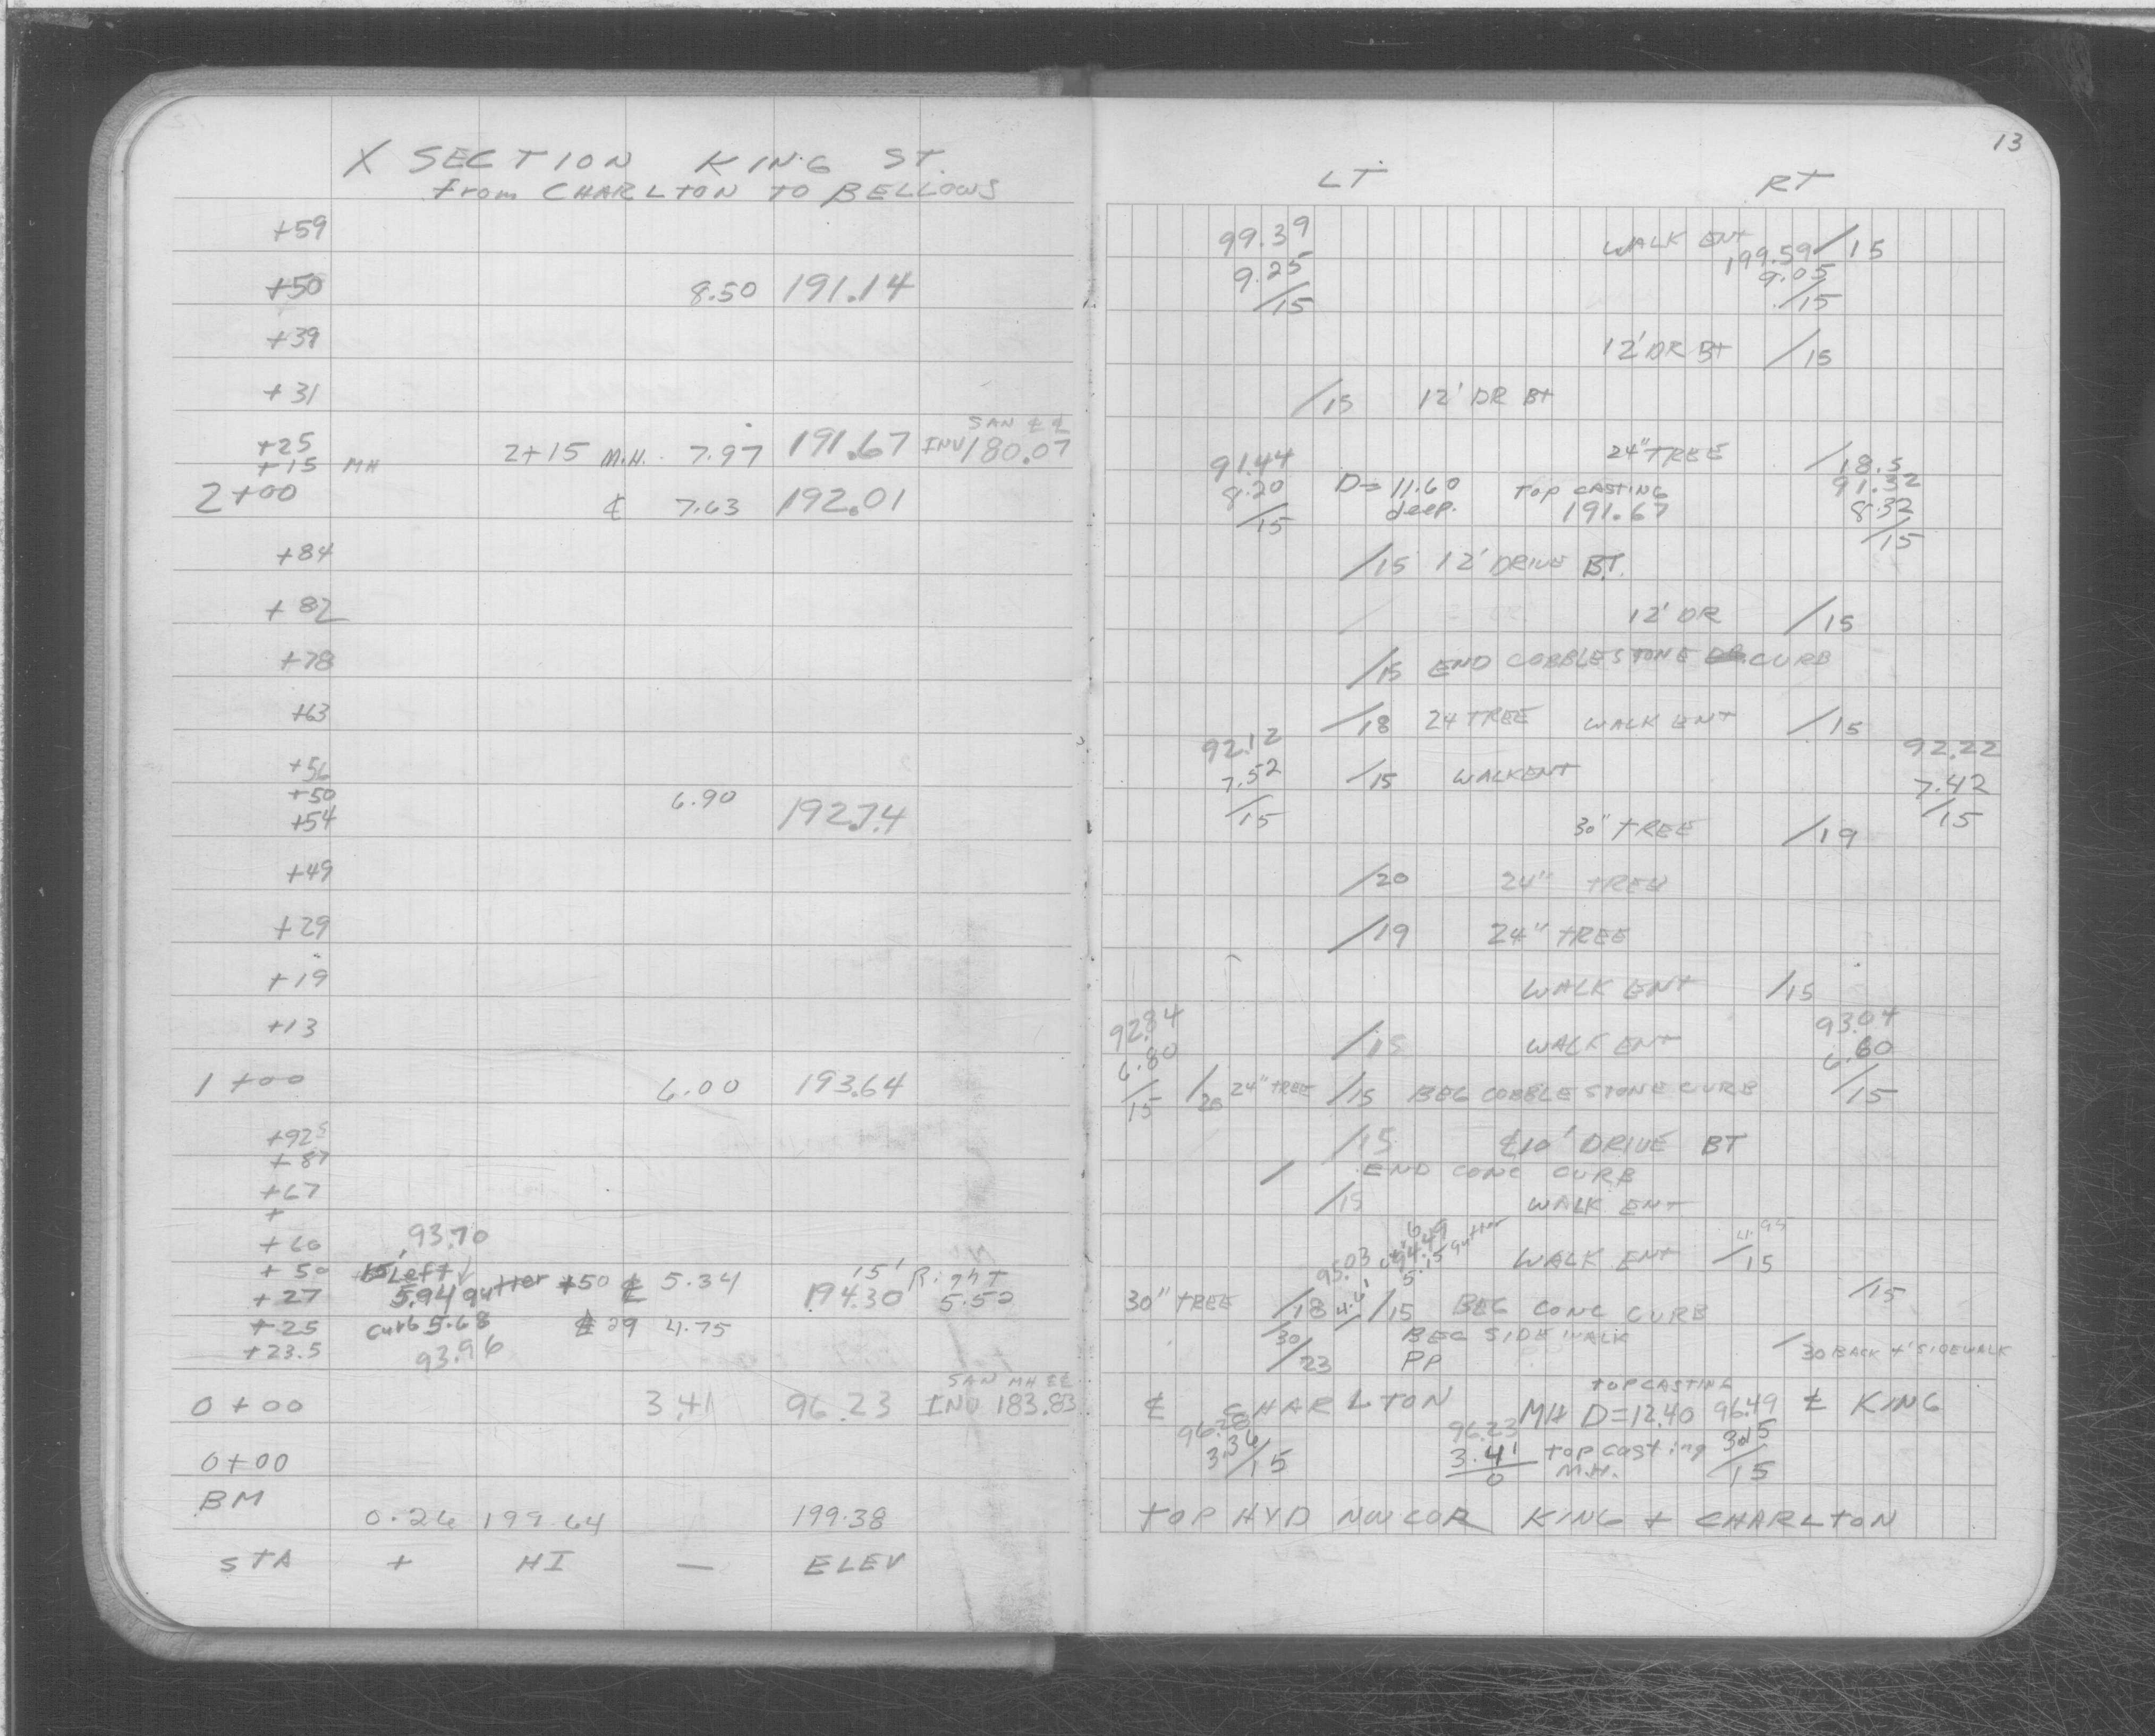 X SECTION KING ST.
from CHARLTON TO BELLOWS
+59
+50 8.50 191.14
+39
+31
SAN ℄ ℄
+25 2+15 M.H. 7.97 191.67 INV 180.07
+15 MH
2+00 ℄ 7.63 192.01
+84
+82
+78
+63
+56
+50 6.90
+54 192.74
+49
+29
+19
+13
1+00 6.00 193.64
+92.5
+87
+67
+
93.70
+60
+50 15' Left ↓ +50 ℄ 5.34 15' Right
+27 5.94 gutter 194.30 5.52
+25 curb 5.68 ℄ 29 4.75
+23.5 93.96
SAN MH
0+00 3.41 96.23 INV 183.83
0+00
BM 0.26 199.64 199.38
STA + HI — ELEV
13
LT RT
99.39 WALK ENT /15
9.25 199.59
/15 9.05
/15
12' DR BT /15
/15 12' DR BT
24" TREE /18.5
91.44 D= 11.60 TOP CASTING 91.32
8.20 deep. 191.67 8.32
/15 /15
/15 12' DRIVE BT.
12' DR /15
/15 END COBBLESTONE CURB
/18 24 TREE WALK ENT /15
92.12 92.22
7.52 /15 WALK ENT 7.42
/15 /15
30" TREE /19
/20 24" TREE
/19 24" TREE
WALK ENT /15
92.84 93.04
6.80 /15 WALK ENT 6.60
/15 /20 24" TREE /15 BEG COBBLE STONE CURB /15
/15 ℄ 10' DRIVE BT
/ END CONC CURB
/15 WALK ENT
95.03 94.49 gutter
5.15 WALK ENT /15
30" TREE /18 /15 BEG CONC CURB /15
/30 BEG SIDEWALK /30 BACK 4' SIDEWALK
/23 PP
TOP CASTING
℄ CHARLTON MH D=12.40 96.49 ℄ KING
96.28 96.23 3.15
3.36 3.41 top casting
/15 0 M.H. /15
TOP HYD NW COR KING + CHARLTON